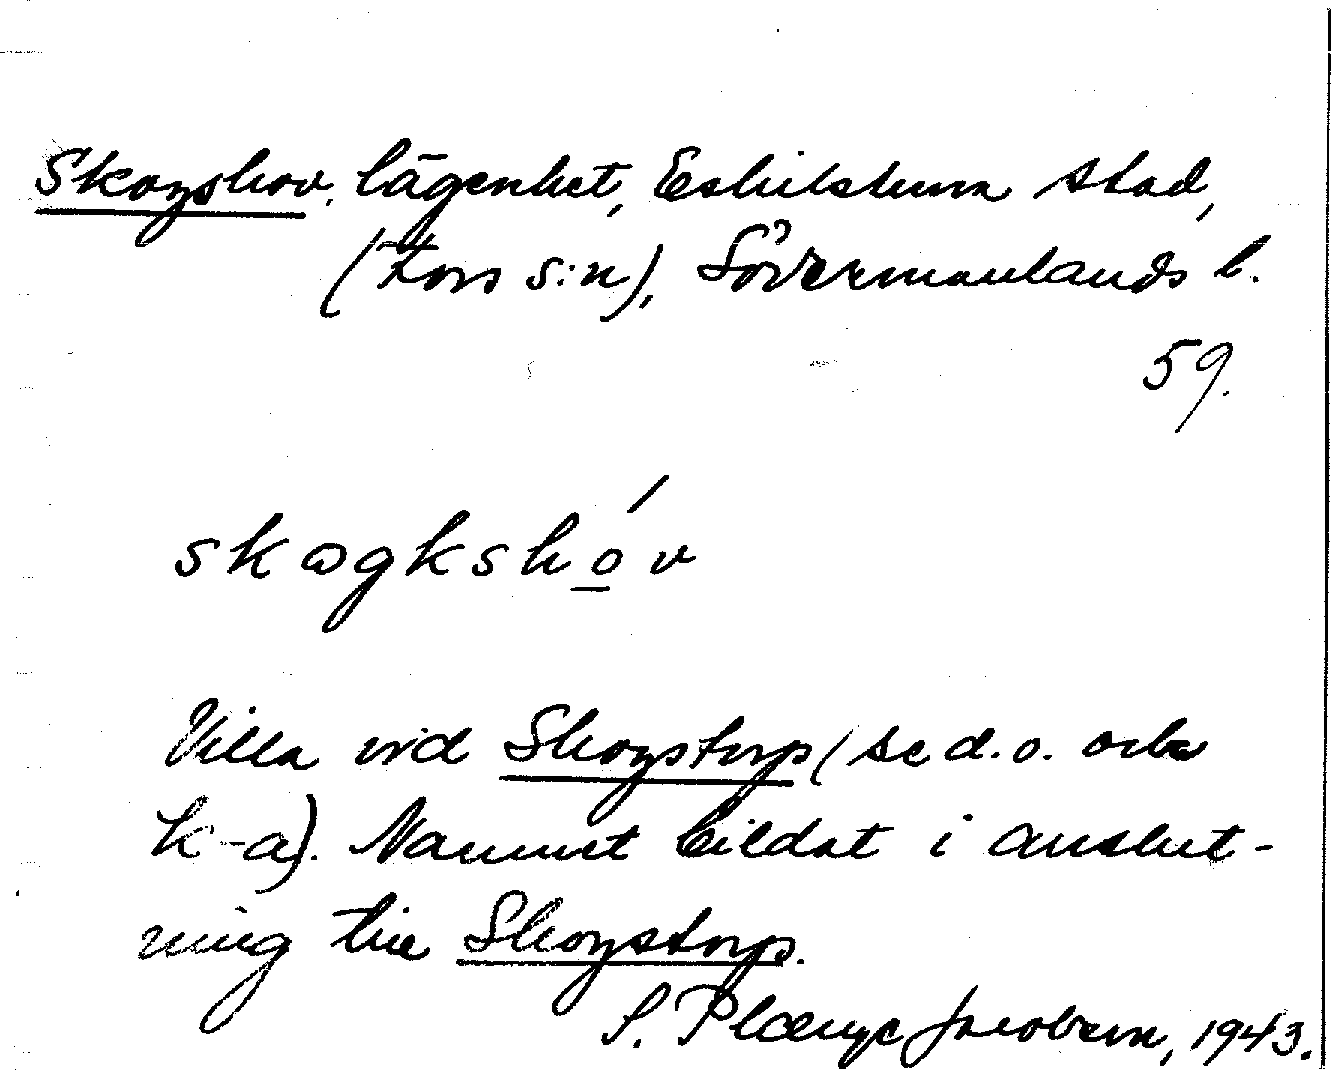 Skogshov, lägenhet, Eskilstuna stad,
(Fors s:n), Södermanlands l.
59.
skogkshóv
Villa vid Skogstorp (se d.o. och
k-a). Namnet bildat i anslut-
ning till Skogstorp.
S. Plænge Jacobson, 1943.